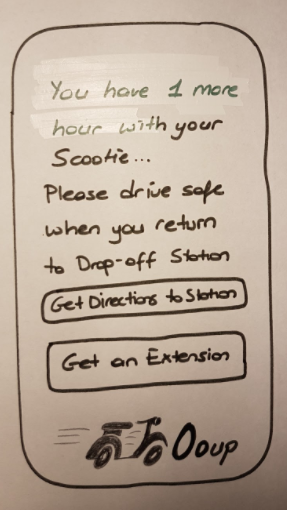 You have 1 more
hour with your
Scootie...
Please drive safe
when you return
to Drop-off Station
Get Directions to Station
Get an Extension
Ooup